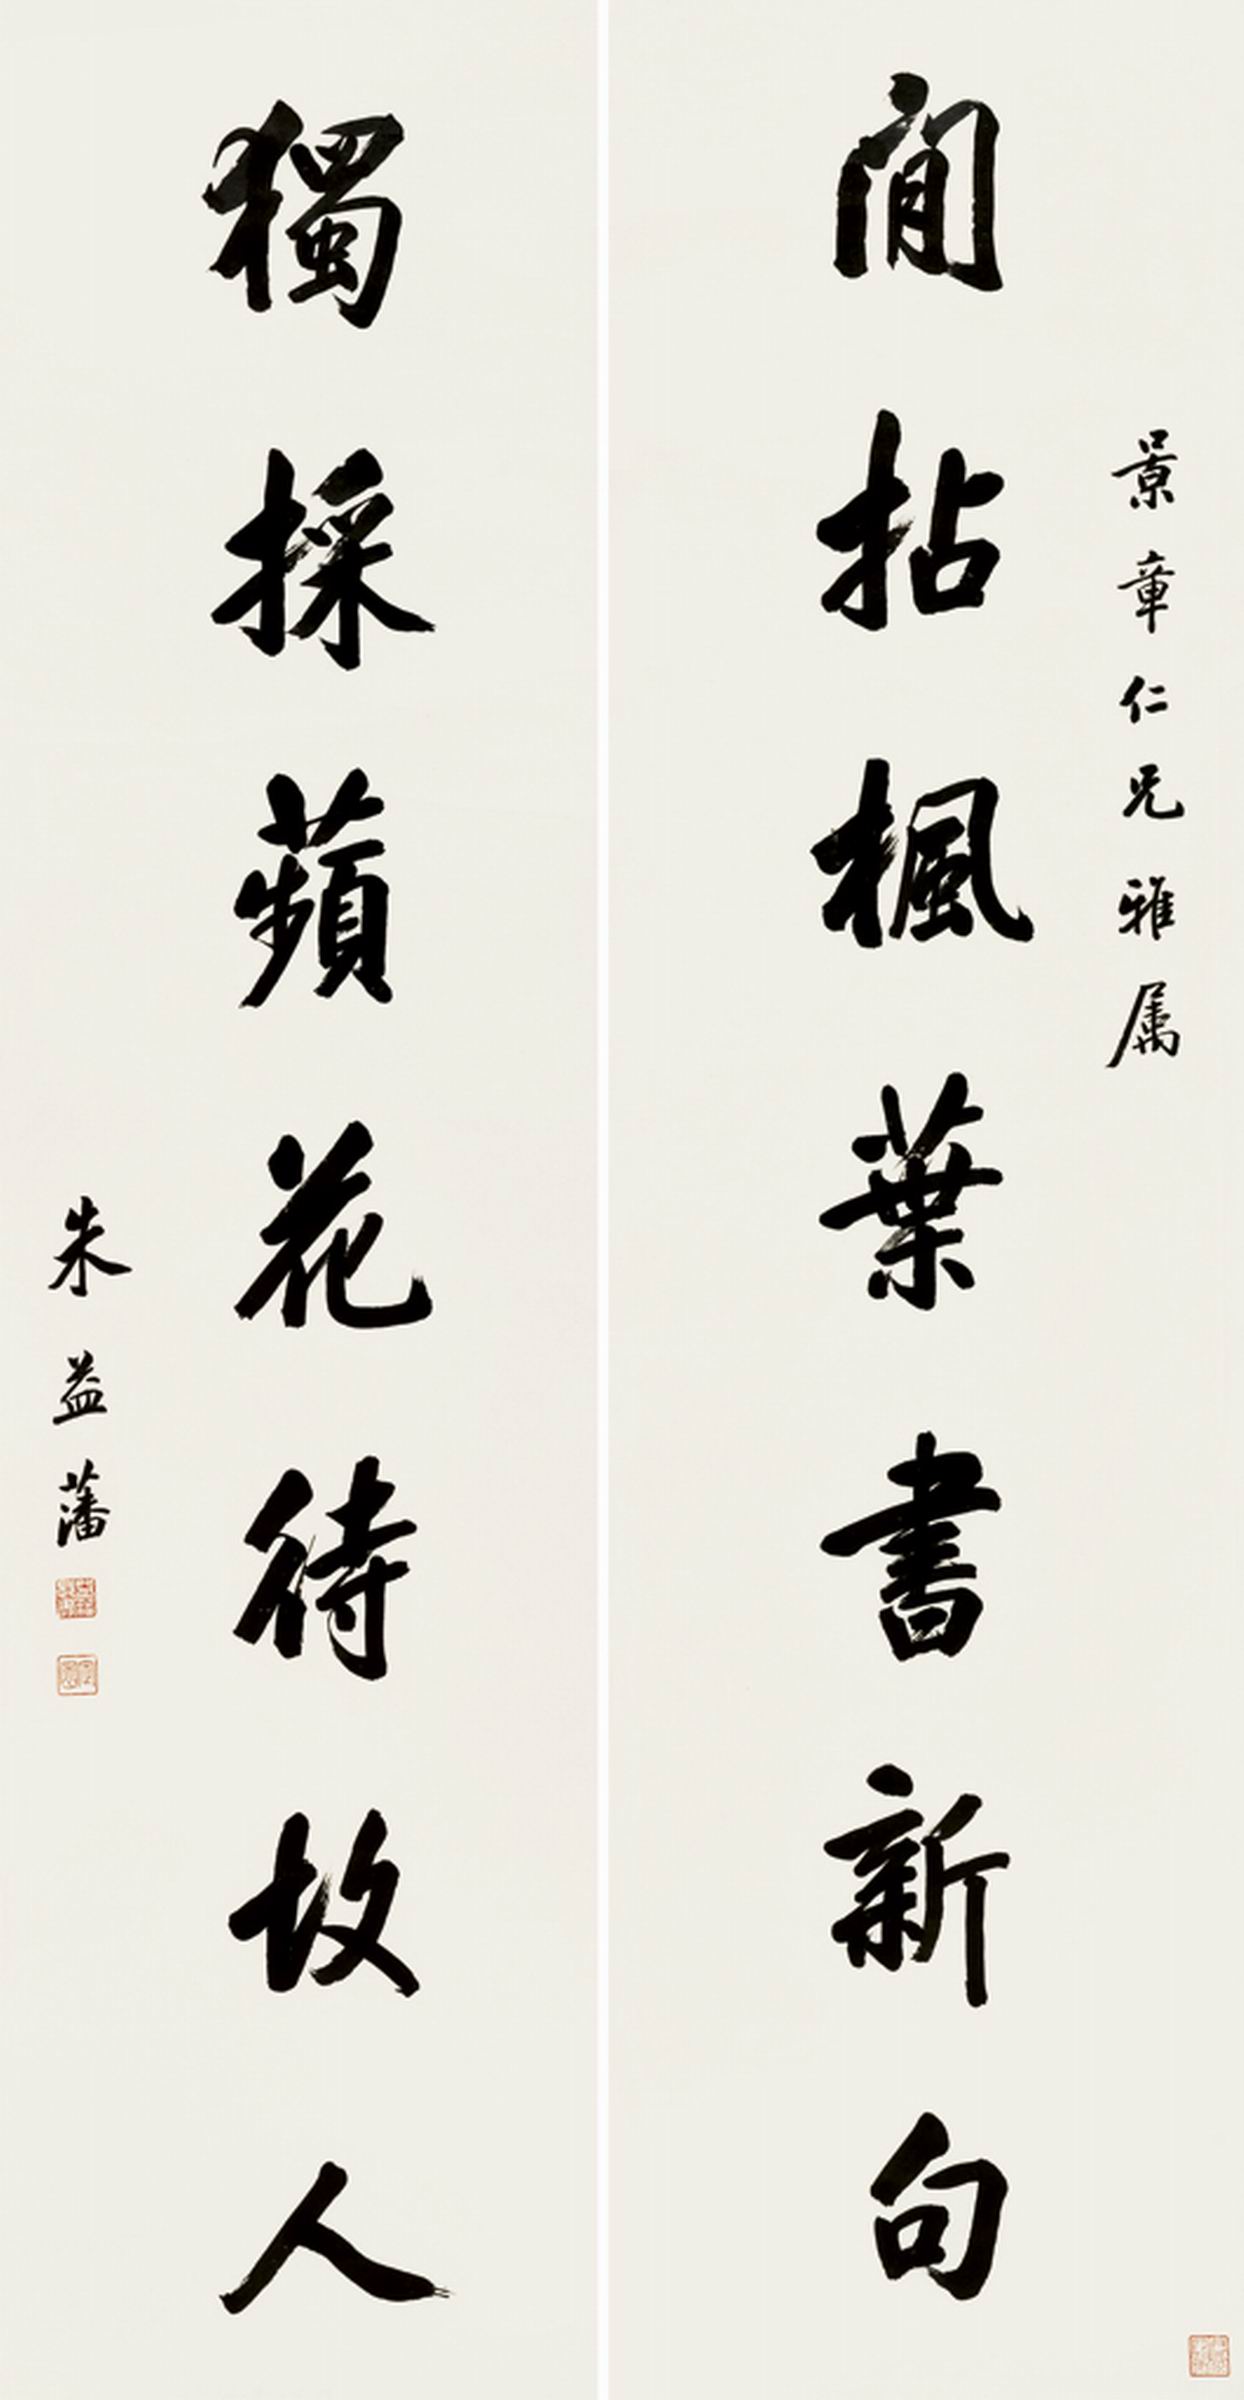 景章仁兄雅属
閒拈楓葉書新句
獨採蘋花待故人
朱益藩